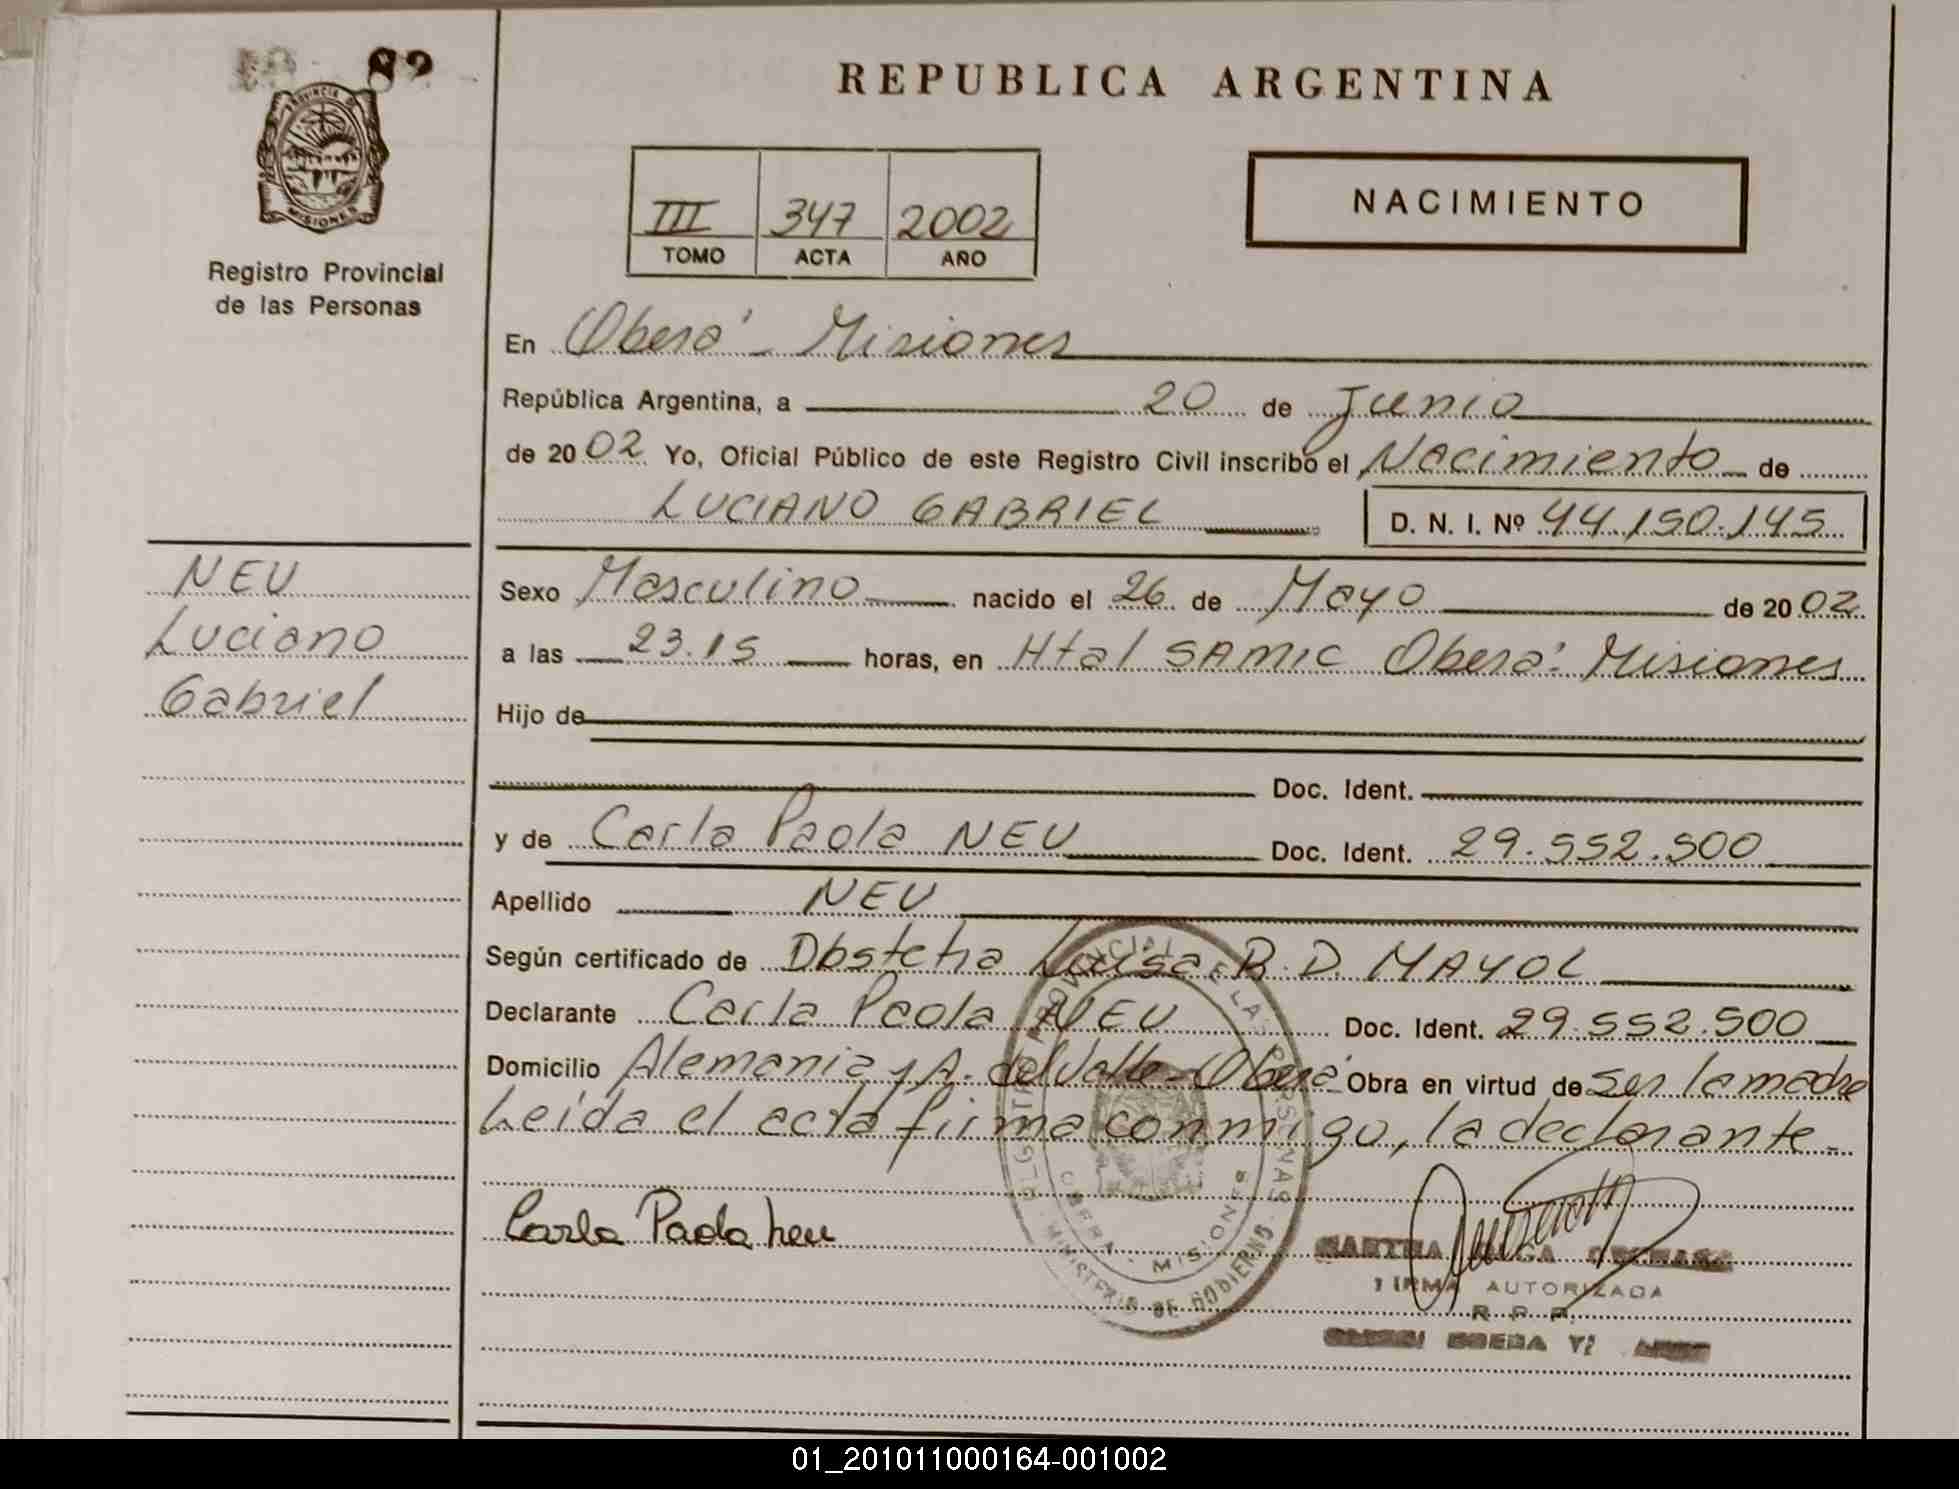 82
PROVINCIA DE
MISIONES
Registro Provincial
de las Personas
REPUBLICA ARGENTINA
III 347 2002
TOMO ACTA AÑO
NACIMIENTO
En Oberá - Misiones
República Argentina, a 20 de Junio
de 2002 Yo, Oficial Público de este Registro Civil inscribo el Nacimiento de
LUCIANO GABRIEL D. N. I. Nº 44.150.145
NEU
Luciano
Gabriel
Sexo Masculino nacido el 26 de Mayo de 2002
a las 23.15 horas, en Htal SAMIC Oberá - Misiones
Hijo de
Doc. Ident.
y de Carla Paola NEU Doc. Ident. 29.552.500
Apellido NEU
Según certificado de Obstetra Luisa B. D. MAYOL
Declarante Carla Paola NEU Doc. Ident. 29.552.500
Domicilio Alemania y A. del Valle - Oberá Obra en virtud de ser la madre
Leída el acta firma conmigo, la declarante -
Carla Paola Neu
REGISTRO PROVINCIAL DE LAS PERSONAS
MINISTERIO DE GOBIERNO
OBERA - MISIONES
FIRMA AUTORIZADA
R. P. P.
01_201011000164-001002